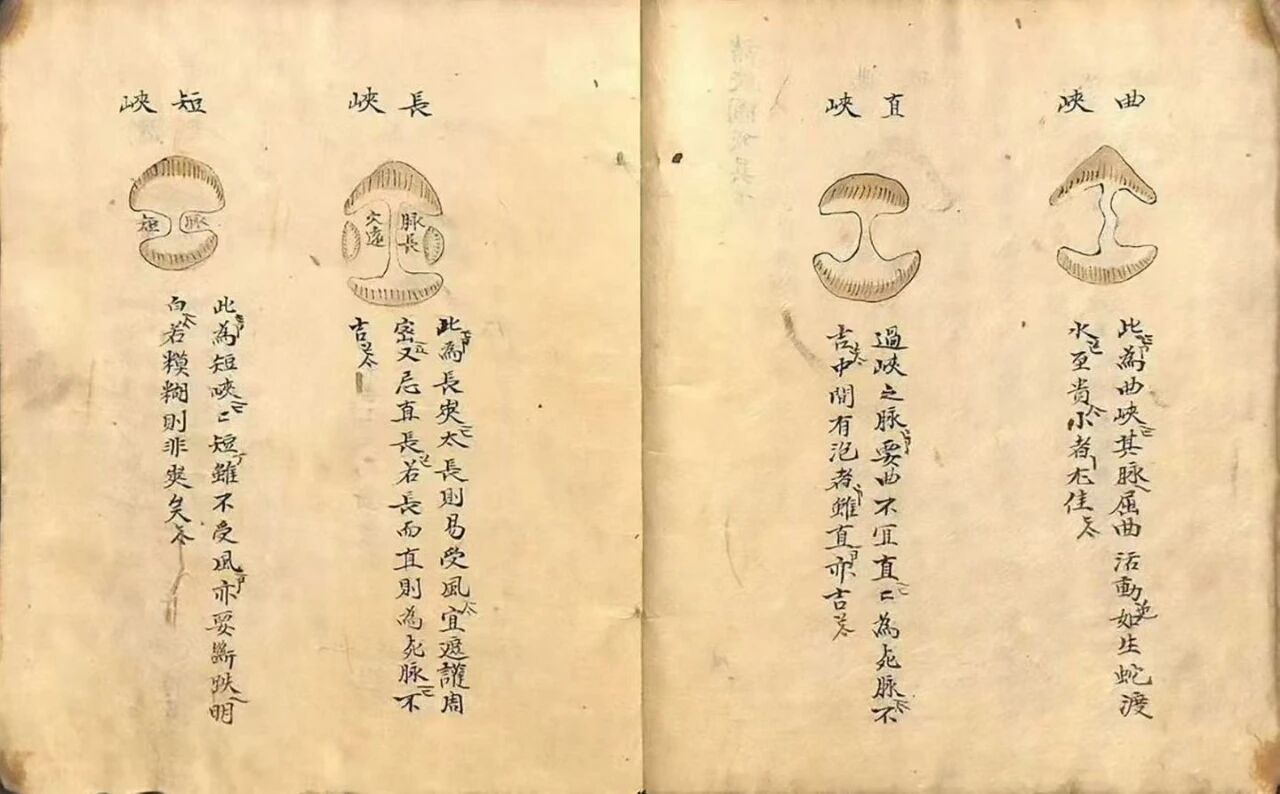 曲峽
此為曲峽其脉屈曲活動如生蛇渡
水至贵小者尤佳
直峽
過峽之脉要曲不宜直〻為死脉不
吉中間有泡者雖直亦吉
長峽
脉長
穴遠
此為長夾太長則易受風宜遮護周
密又忌直長若長而直則為死脉不
吉
短峽
脉短
此為短峽〻短雖不受風亦要斷跌明
白若糢糊則非夾矣